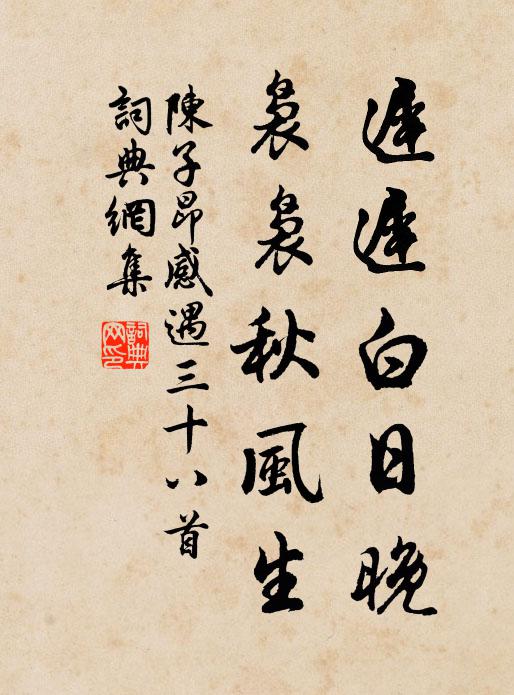 遲遲白日晚
裊裊秋風生
陳子昂感遇三十八首
詞典網集
詞典网印